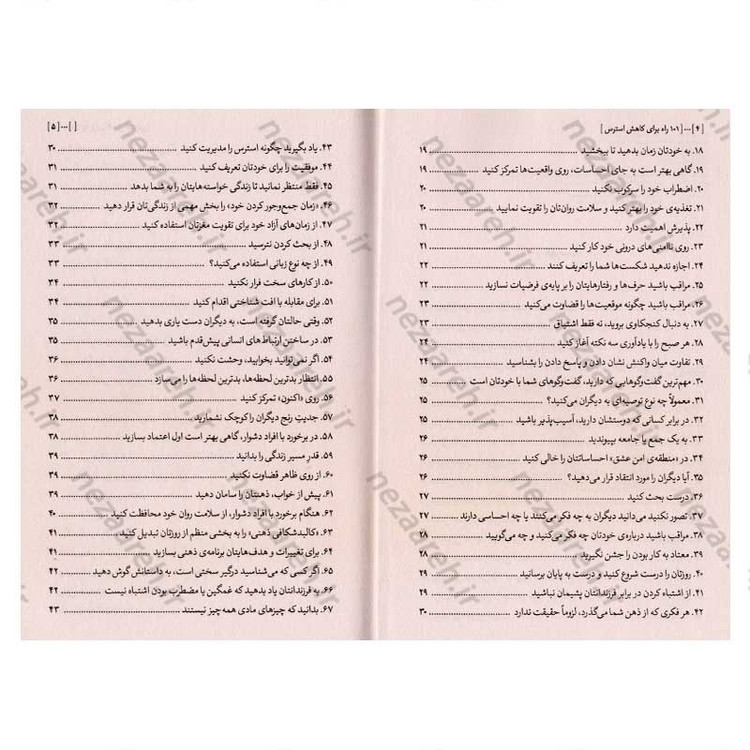 [ ۴ ] --- [ ۱۰۱ راه برای کاهش استرس ]
۱۸. به خودتان زمان بدهید تا ببخشید ۱۹
۱۹. گاهی بهتر است به جای احساسات، روی واقعیت‌ها تمرکز کنید ۱۹
۲۰. اضطراب خود را سرکوب نکنید ۲۰
۲۱. تغذیه‌ی خود را بهتر کنید و سلامت روان‌تان را تقویت نمایید ۲۰
۲۲. پذیرش اهمیت دارد ۲۱
۲۳. روی ناامنی‌های درونی خود کار کنید ۲۱
۲۴. اجازه ندهید شکست‌ها شما را تعریف کنند ۲۲
۲۵. مراقب باشید حرف‌ها و رفتارهایتان را بر پایه‌ی فرضیات نسازید ۲۲
۲۶. مراقب باشید چگونه موقعیت‌ها را قضاوت می‌کنید ۲۳
۲۷. به دنبال کنجکاوی بروید، نه فقط اشتیاق ۲۳
۲۸. هر صبح را با یادآوری سه نکته آغاز کنید ۲۴
۲۹. تفاوت میان واکنش نشان دادن و پاسخ دادن را بشناسید ۲۴
۳۰. مهم‌ترین گفت‌وگوهایی که دارید، گفت‌وگوهای شما با خودتان است ۲۵
۳۱. معمولاً چه نوع توصیه‌ای به دیگران می‌کنید؟ ۲۵
۳۲. در برابر کسانی که دوستشان دارید، آسیب‌پذیر باشید ۲۵
۳۳. به یک جمع یا جامعه بپیوندید ۲۶
۳۴. در «منطقه‌ی امن عشق» احساساتتان را خالی کنید ۲۶
۳۵. آیا دیگران را مورد انتقاد قرار می‌دهید؟ ۲۶
۳۶. درست بحث کنید ۲۷
۳۷. تصور نکنید می‌دانید دیگران به چه فکر می‌کنند یا چه احساسی دارند ۲۷
۳۸. مراقب باشید درباره‌ی خودتان چه فکر می‌کنید و چه می‌گویید ۲۸
۳۹. معتاد به کار بودن را جشن نگیرید ۲۸
۴۰. روزتان را درست شروع کنید و درست به پایان برسانید ۲۹
۴۱. از اشتباه کردن در برابر فرزندانتان پشیمان نباشید ۲۹
۴۲. هر فکری که از ذهن شما می‌گذرد، لزوماً حقیقت ندارد ۳۰
[ ] --- [ ۵ ]
۴۳. یاد بگیرید چگونه استرس را مدیریت کنید ۳۰
۴۴. موفقیت را برای خودتان تعریف کنید ۳۱
۴۵. فقط منتظر نمانید تا زندگی خواسته‌هایتان را به شما بدهد ۳۱
۴۶. «زمان جمع‌وجور کردن خود» را بخش مهمی از زندگی‌تان قرار دهید ۳۲
۴۷. از زمان‌های آزاد خود برای تقویت مغزتان استفاده کنید ۳۲
۴۸. از بحث کردن نترسید ۳۳
۴۹. از چه نوع زبانی استفاده می‌کنید؟ ۳۳
۵۰. از کارهای سخت فرار نکنید ۳۴
۵۱. برای مقابله با افت شناختی اقدام کنید ۳۴
۵۲. وقتی حالتان گرفته است، به دیگران دست یاری بدهید ۳۵
۵۳. در ساختن ارتباط‌های انسانی پیش‌قدم باشید ۳۵
۵۴. اگر نمی‌توانید بخوابید، وحشت نکنید ۳۶
۵۵. انتظار بدترین لحظه‌ها، بدترین لحظه‌ها را می‌سازد ۳۶
۵۶. روی «اکنون» تمرکز کنید ۳۷
۵۷. جدیتِ رنج دیگران را کوچک نشمارید ۳۸
۵۸. در برخورد با افراد دشوار، گاهی بهتر است اول اعتماد بسازید ۳۸
۵۹. قدرِ مسیر زندگی را بدانید ۳۹
۶۰. از روی ظاهر قضاوت نکنید ۳۹
۶۱. پیش از خواب، ذهنتان را سامان دهید ۳۹
۶۲. هنگام برخورد با افراد دشوار، از سلامت روان خود محافظت کنید ۴۰
۶۳. «کالبدشکافی ذهنی» را به بخشی منظم از روزتان تبدیل کنید ۴۱
۶۴. برای تغییرات و هدف‌هایتان برنامه‌ی ذهنی بسازید ۴۱
۶۵. اگر کسی که می‌شناسید درگیر سختی است، به داستانش گوش دهید ۴۲
۶۶. به فرزندانتان یاد بدهید که غمگین یا مضطرب بودن اشتباه نیست ۴۲
۶۷. بدانید که چیزهای مادی همه‌چیز نیستند ۴۳
nezaareh.ir